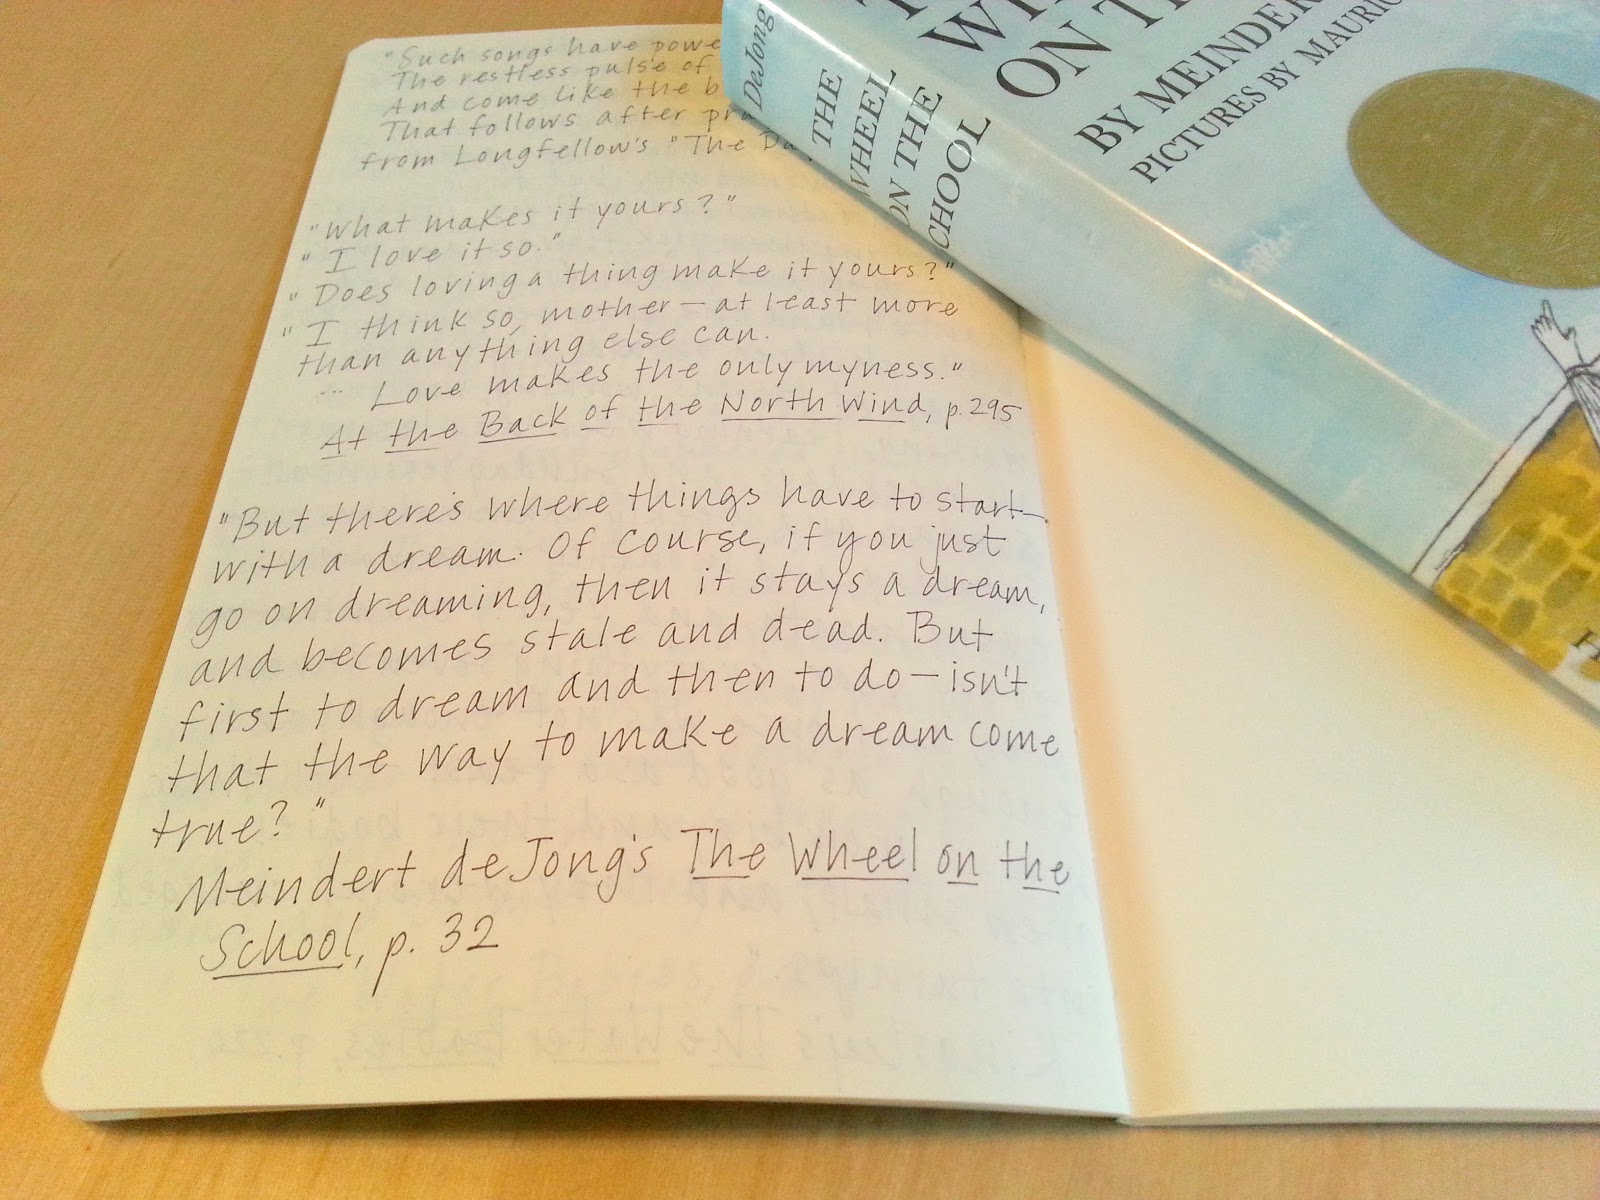 "Such songs have powe
The restless pulse of
And come like the b
That follows after pra
from Longfellow's "The Da
"What makes it yours?"
"I love it so."
"Does loving a thing make it yours?"
"I think so, mother—at least more
than anything else can.
... Love makes the only myness."
At the Back of the North Wind, p.295
"But there's where things have to start—
with a dream. Of course, if you just
go on dreaming, then it stays a dream,
and becomes stale and dead. But
first to dream and then to do—isn't
that the way to make a dream come
true?"
Meindert deJong's The Wheel on the
School, p. 32
DeJong
THE
WHEEL
ON THE
SCHOOL
WH
ON TH
BY MEINDER
PICTURES BY MAURIC
Kingsley's The Water Babies, p. 220